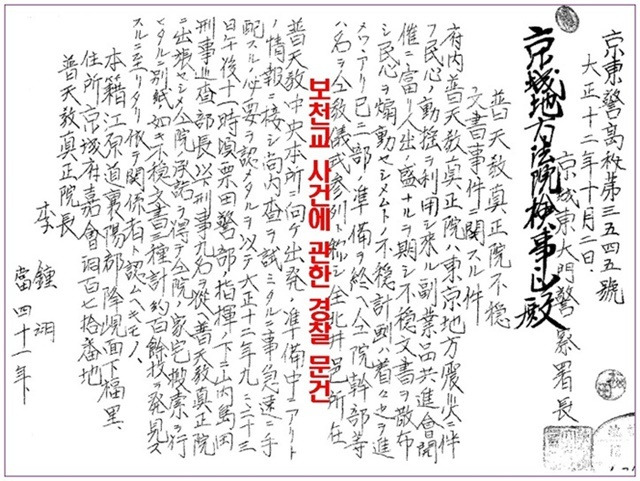 京東警高秘第三五四五號
大正十二年十月二日.
京城東大門警察署長
京城地方法院檢事正殿
普天敎真正院不穏
文書事件ニ関スル件
府内普天敎真正院ハ東京地方震災ニ伴
フ民心ノ動揺ヲ利用シ来ル副業品共進會開
催ニ當リ人出ノ盛ナルヲ期シ不穏文書ヲ散布
シ民心ヲ煽動セシメントノ不穏計劃ハ着々 ヲ進
メツヽアリ已ニ一部ノ準備ヲ終ヘ仝院幹部等
ハ名ヲ仝敎儀式參列ト称シ全北井邑所在
보천교 사건에 관한 경찰 문건
普天敎中央本所ニ向ケ出発ノ準備中ニアリト
ノ情報ニ接シ 内査ヲ試ミタルニ事急速ニ手
配スルノ必要ヲ認メタルヲ以テ大正十二年九
日午後十一時頃栗田警部ノ指揮ノ下ニ山内島田
刑事巡査部長以下刑事九名ヲ從ヘ普天敎真正院
ニ出張セシメ仝院ノ承諾ヲ得テ仝院ノ家宅捜索ヲ行
ヒタルニ別紙ノ如キ不穏文書三種計約百餘枚ヲ発見ス
ルニ至リタリ依テ関係者ト認ムヘキモノ、
本籍江原道襄陽郡降峴面下福里
住所京城府嘉會洞百七拾番地
普天敎真正院長
李 鍾翊
當四十一年